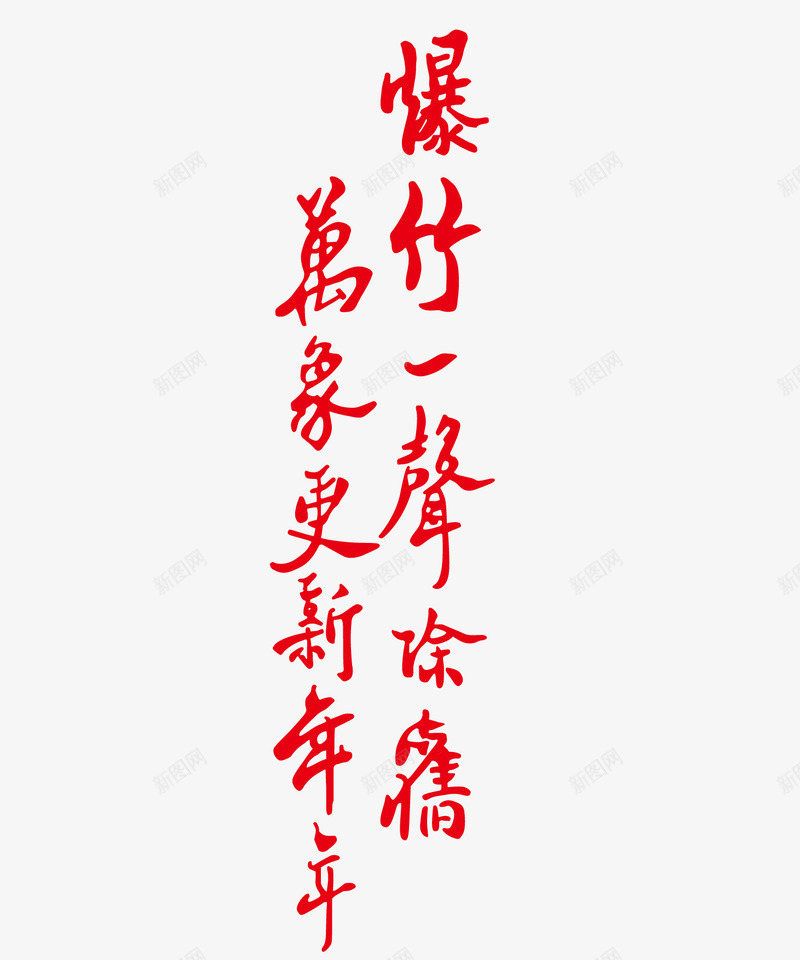 爆竹一聲除舊
萬象更新年年
新图网